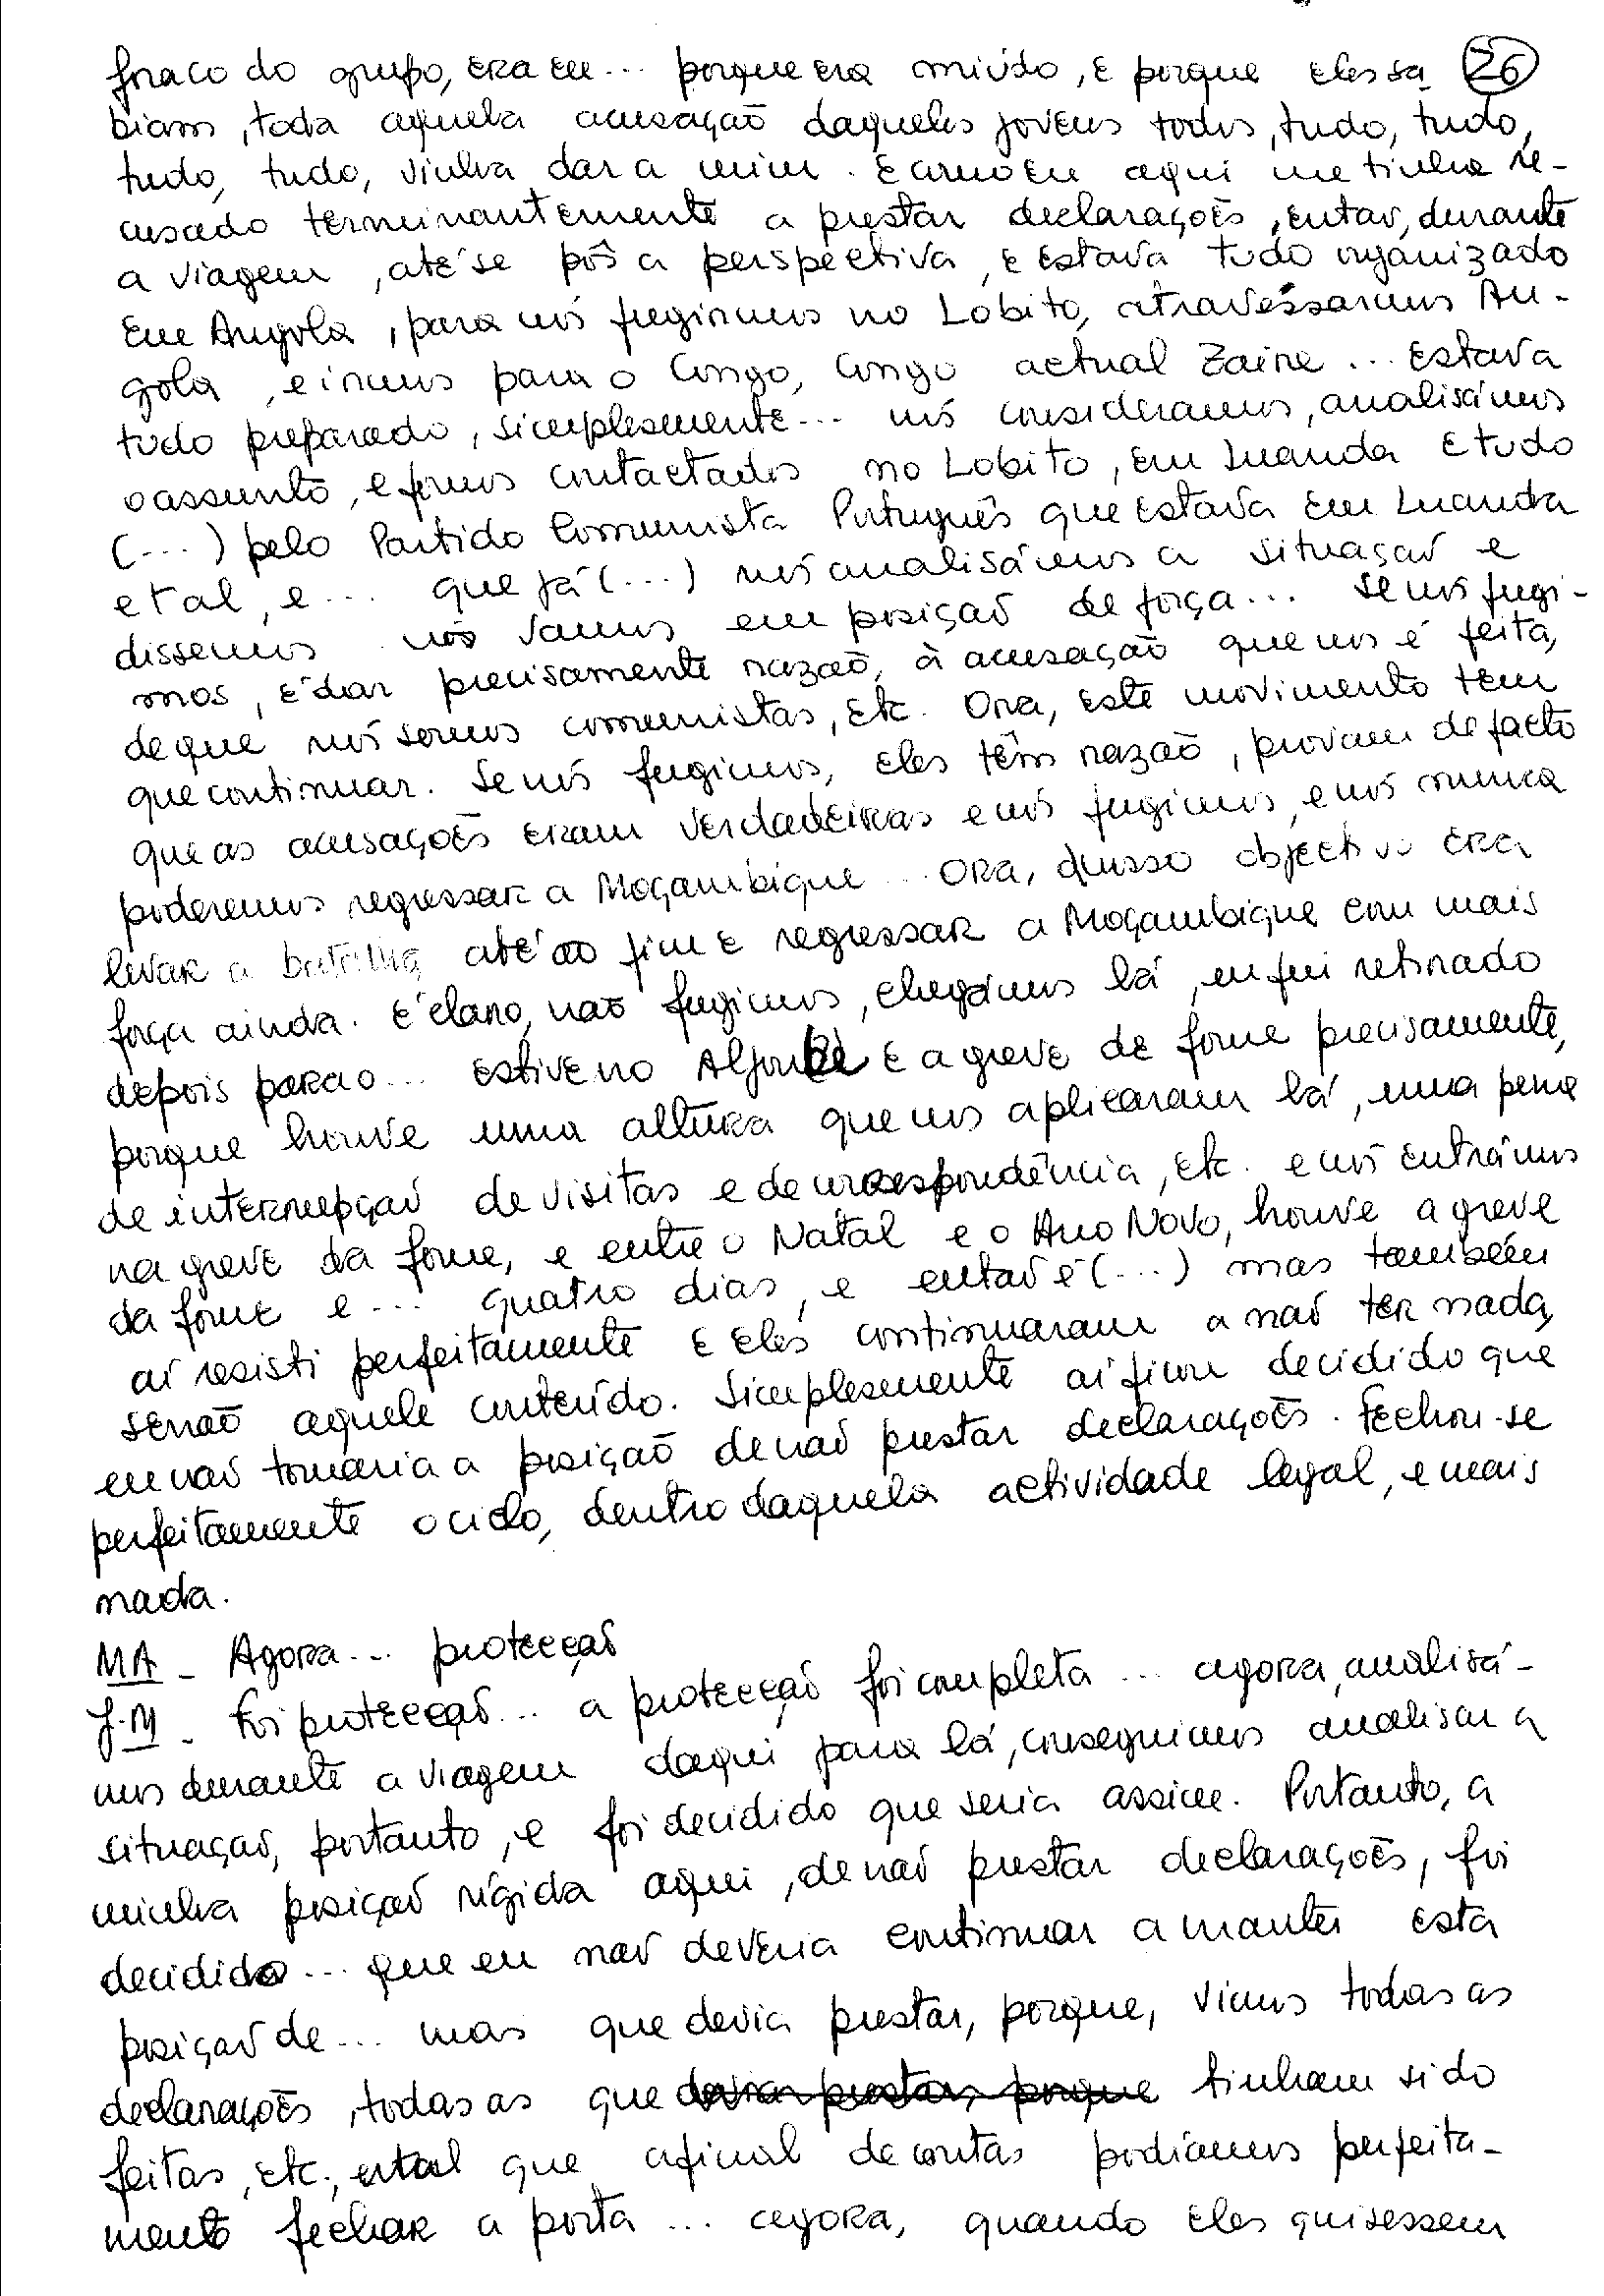 fraco do grupo, era eu... porque era miúdo, e porque eles sa- (26)
biam, toda aquela acusação daqueles jovens todos, tudo, tudo,
tudo, tudo, vinha dar a mim. E como eu aqui me tinha re-
cusado terminantemente a prestar declarações, então, durante
a viagem, até se pôs a perspectiva, e estava tudo organizado
em Angola, para nós fugirmos no Lobito, atravessarmos An-
gola, e irmos para o Congo, Congo actual Zaire... Estava
tudo preparado, simplesmente... nós consideramos, analisámos
o assunto, e fomos contactados no Lobito, em Luanda e tudo
(...) pelo Partido Comunista Português que estava em Luanda
e tal, e... que já (...) nós analisámos a situação e
dissemos nós vamos em posição de força... se nós fugi-
mos, é dar precisamente razão, à acusação que nos é feita,
de que nós somos comunistas, etc. Ora, este movimento tem
que continuar. Se nós fugimos, eles têm razão, provam de facto
que as acusações eram verdadeiras e nós fugimos, e nós nunca
poderemos regressar a Moçambique... Ora, nosso objectivo era
levar a batalha até ao fim e regressar a Moçambique com mais
força ainda. E claro, não fugimos, chegámos lá, eu fui retirado
depois para o... estive no Aljube e a greve de fome precisamente,
porque houve uma altura que nos aplicaram lá, uma pena
de interrupção de visitas e de correspondência, etc. e nós entrámos
na greve da fome, e entre o Natal e o Ano Novo, houve a greve
da fome e... quatro dias, e então é (...) mas também
aí resisti perfeitamente e eles continuaram a não ter nada,
senão aquele conteúdo. Simplesmente aí ficou decidido que
eu não tomaria a posição de não prestar declarações. Fechou-se
perfeitamente o ciclo, dentro daquela actividade legal, e mais
nada.
MA - Agora... protecção
J.M - Foi protecção... a protecção foi completa... agora, analisá-
mos durante a viagem daqui para lá, conseguimos analisar a
situação, portanto, e foi decidido que seria assim. Portanto, a
minha posição rígida aqui, de não prestar declarações, foi
decidido... que eu não deveria continuar a manter esta
posição de... mas que devia prestar, porque, vimos todas as
declarações, todas as que devia prestar, porque tinham sido
feitas, etc., e tal que afinal de contas podíamos perfeita-
mente fechar a porta... agora, quando eles quisessem